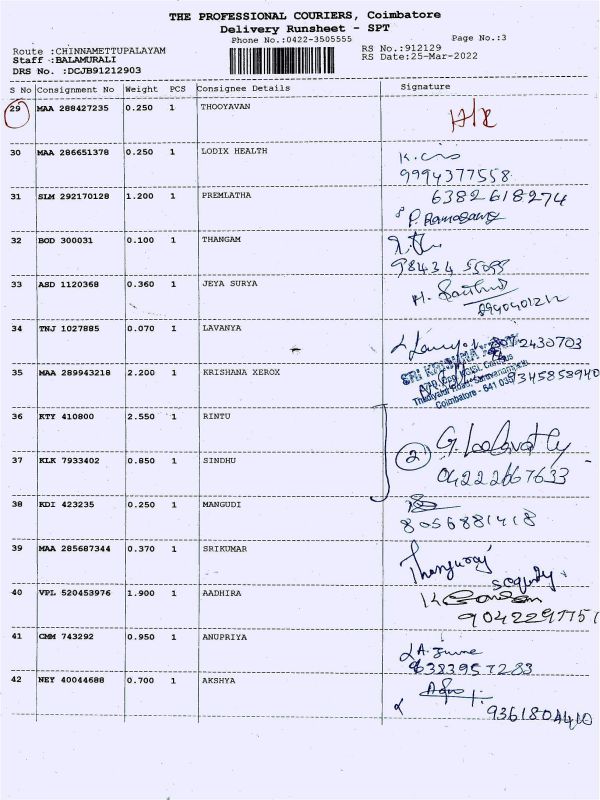 THE PROFESSIONAL COURIERS, Coimbatore
Delivery Runsheet - SPT
Phone No.:0422-3505555
Page No.:3
Route :CHINNAMETTUPALAYAM
Staff :BALAMURALI
DRS No. :DCJB91212903
RS No.:912129
RS Date:25-Mar-2022
S No Consignment No Weight PCS Consignee Details Signature
29 MAA 288427235 0.250 1 THOOYAVAN
30 MAA 286651378 0.250 1 LODIX HEALTH
9994377558
31 SLM 292170128 1.200 1 PREMLATHA 6382618274
P. Ramasamy
32 BOD 300031 0.100 1 THANGAM
98434 55099
33 ASD 1120368 0.360 1 JEYA SURYA
34 TNJ 1027885 0.070 1 LAVANYA
2430703
35 MAA 289943218 2.200 1 KRISHANA XEROX
SRI KRISHNA
Coimbatore - 641 035
9345858940
36 KTY 410800 2.550 1 RINTU
2
37 KLK 7933402 0.850 1 SINDHU
04222667633
38 KDI 423235 0.250 1 MANGUDI
8056881418
39 MAA 285687344 0.370 1 SRIKUMAR
Thanguraj
40 VPL 520453976 1.900 1 AADHIRA
41 CMM 743292 0.950 1 ANUPRIYA
6383957283
42 NEY 40044688 0.700 1 AKSHYA
9361804410